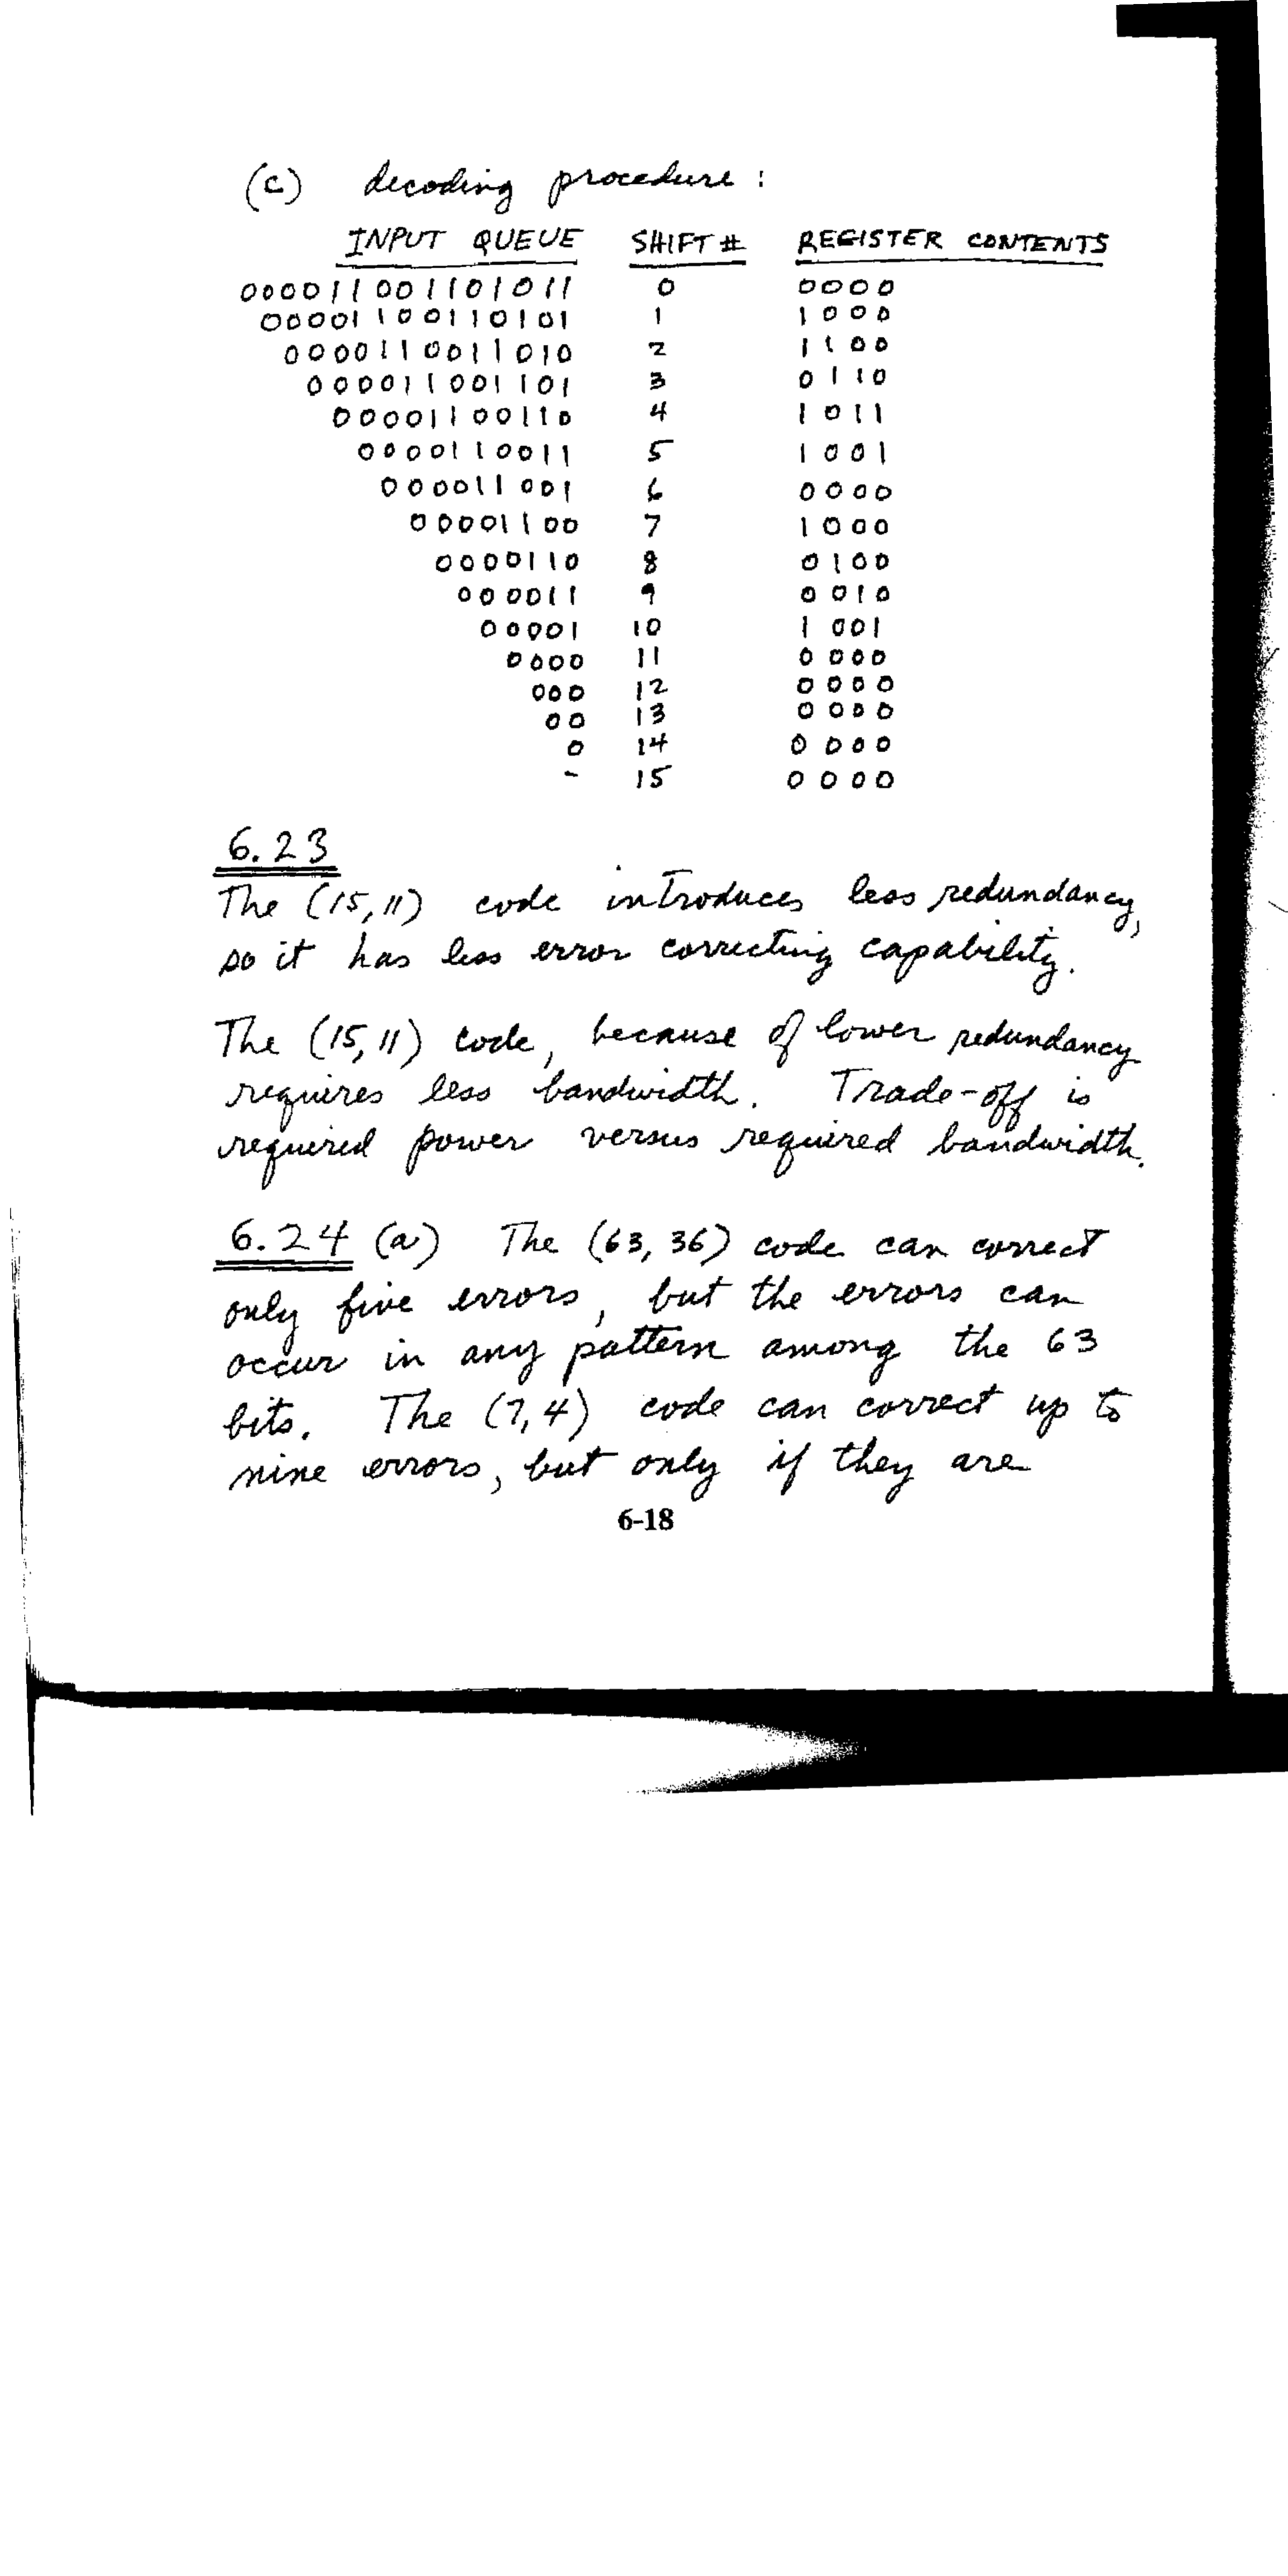 (c) decoding procedure :
INPUT QUEUE SHIFT # REGISTER CONTENTS
000011001101011 0 0000
00001100110101 1 1000
0000110011010 2 1100
000011001101 3 0110
00001100110 4 1011
0000110011 5 1001
000011001 6 0000
00001100 7 1000
0000110 8 0100
000011 9 0010
00001 10 1001
0000 11 0000
000 12 0000
00 13 0000
0 14 0000
- 15 0000
6.23
The (15,11) code introduces less redundancy,
so it has less error correcting capability.
The (15,11) code, because of lower redundancy
requires less bandwidth. Trade-off is
required power versus required bandwidth.
6.24 (a) The (63,36) code can correct
only five errors, but the errors can
occur in any pattern among the 63
bits. The (7,4) code can correct up to
nine errors, but only if they are
6-18